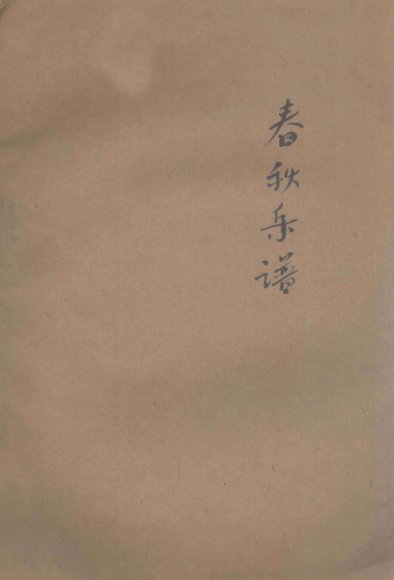 春秋乐谱